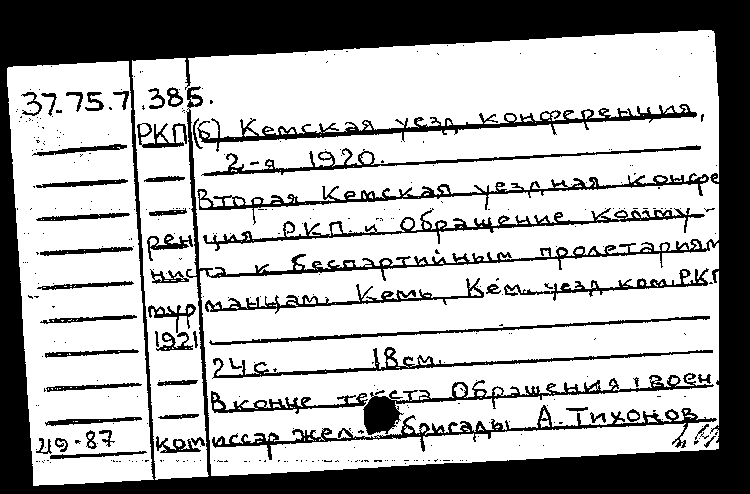 37.75.7.385.
РКП(б) Кемская уезд. конференция,
2-я, 1920.
Вторая Кемская уездная конфе
ренция Р.К.П. и Обращение комму-
ниста к беспартийным пролетариям
мусульманцам. Кемь, Кем. уезд. ком. РКП
1921
24 с. 18 см.
В конце текста Обращения: воен.
49-87 комиссар жел. бригады А. Тихонов